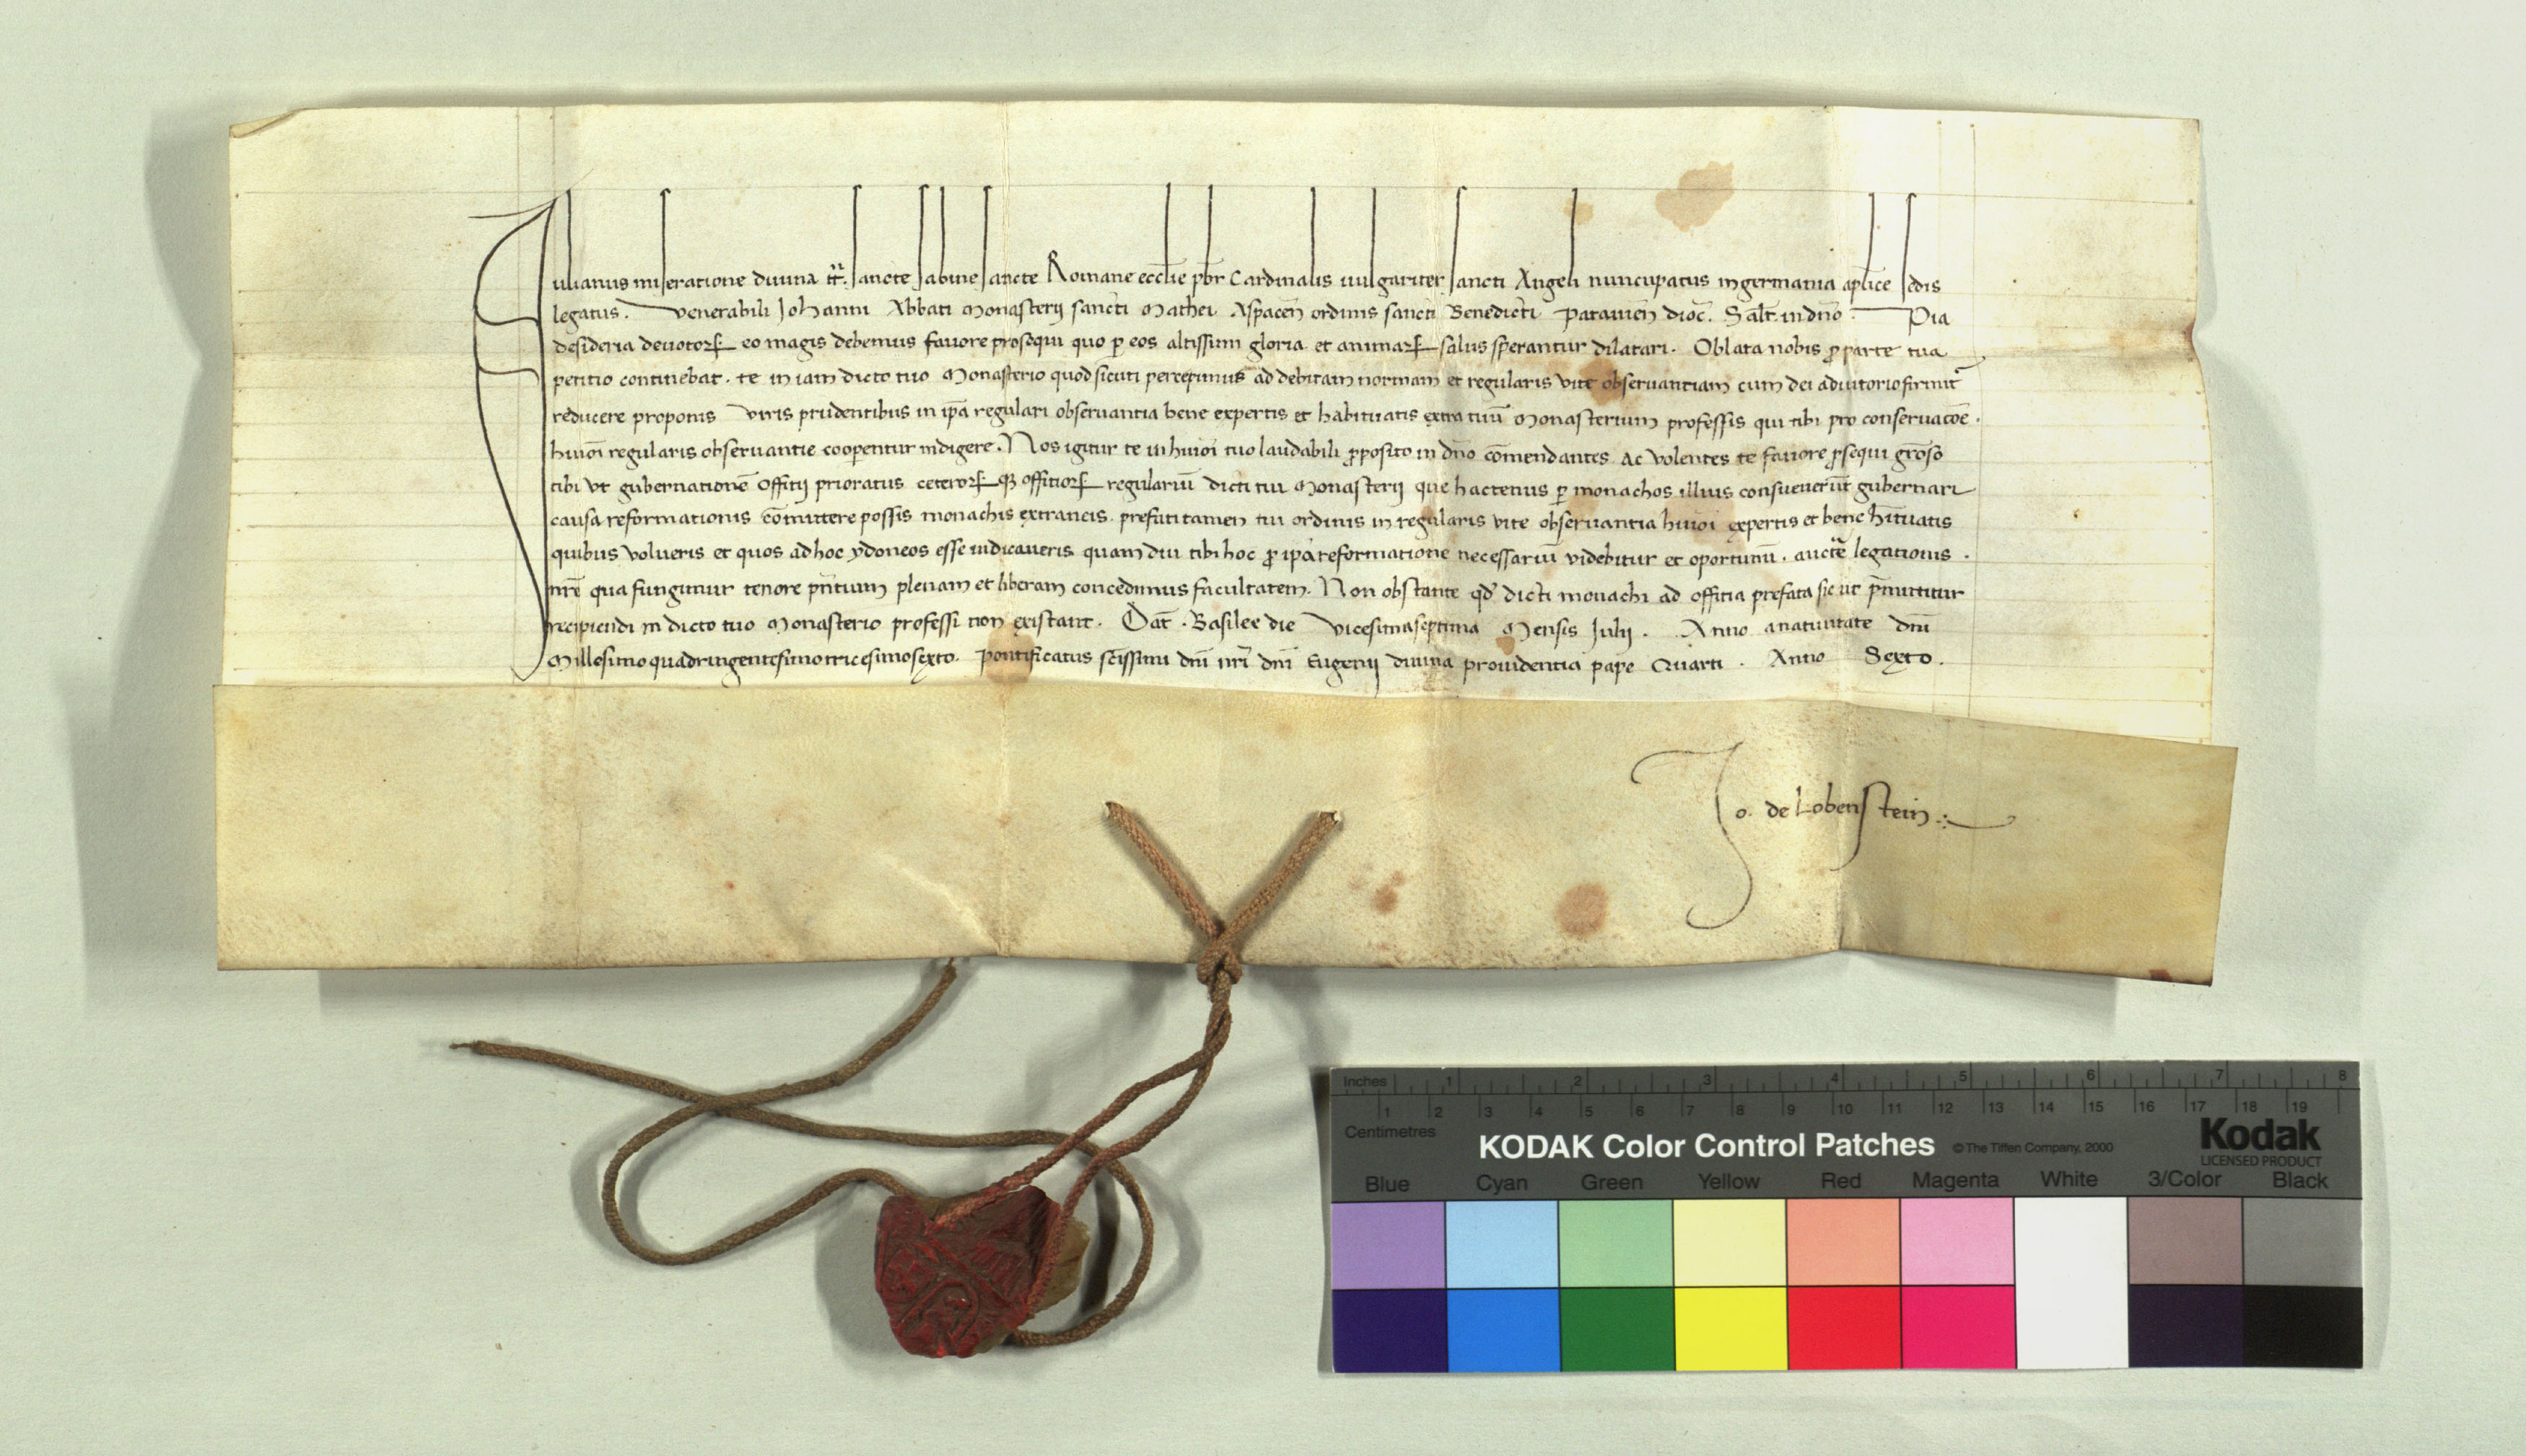 Iulianus miseratione divina tt̄. sancte Sabine sancte Romane eccl̄ie p̄br Cardinalis vulgariter sancti Angeli nuncupatus in germania ap̄lice sedis
legatus. venerabili Johanni Abbati Monasterij sancti Mathei Aspaceñ ordinis sancti Benedicti Patavieñ dioc̄. Sal̄t. in dn̄o. Pia
desideria devotoꝝ eo magis debemus favore prosequi quo ꝑ eos altissimi gloria et animaꝝ salus sperantur dilatari. Oblata nobis ꝓ parte tua
petitio continebat. te in iam dicto tuo Monasterio quod sicuti percepimus ad debitam normam et regularis vite observantiam cum dei adiutorio firmit̄
reducere proponis viris prudentibus in ip̄a regulari observantia bene expertis et habituatis extra tuū Monasterium professis qui tibi pro conservac̄oe.
huiōi regularis observantie cooperentur indigere. Nos igitur te in huiōi tuo laudabili ꝓposito in dn̄o cōmendantes Ac volentes te favore ꝓsequi gr̄oso
tibi vt gubernationē offitij prioratus ceteroꝝ qꝫ offitioꝝ regulariū dicti tui Monasterij que hactenus ꝑ monachos illius consueverūt gubernari
causa reformationis cōmittere possis monachis extraneis. prefati tamen tui ordinis in regularis vite observantia huiōi expertis et bene h̄ituatis
quibus volueris et quos ad hoc ydoneos esse iudicaveris quam diu tibi hoc ꝓ ip̄a reformatione necessariū videbitur et oportunū. auct̄e legationis.
nr̄e qua fungimur tenore pn̄tium plenam et liberam concedimus facultatem. Non obstante qd̄ dicti monachi ad offitia prefata sic ut p̄mittitur
recipiendi in dicto tuo Monasterio professi non existant. Dat̄. Basilee die vicesimaseptima Mensis Julij. Anno a nativitate dn̄i
Millesimoquadringentesimotricesimosexto. Pontificatus sc̄issimi dn̄i nr̄i dn̄i Eugenij divina providentia pape Quarti. Anno Sexto.
Jo. de Lobenstein
Inches 1 2 3 4 5 6 7 8
1 2 3 4 5 6 7 8 9 10 11 12 13 14 15 16 17 18 19
Centimetres
KODAK Color Control Patches © The Tiffen Company, 2000 Kodak
LICENSED PRODUCT
Blue Cyan Green Yellow Red Magenta White 3/Color Black